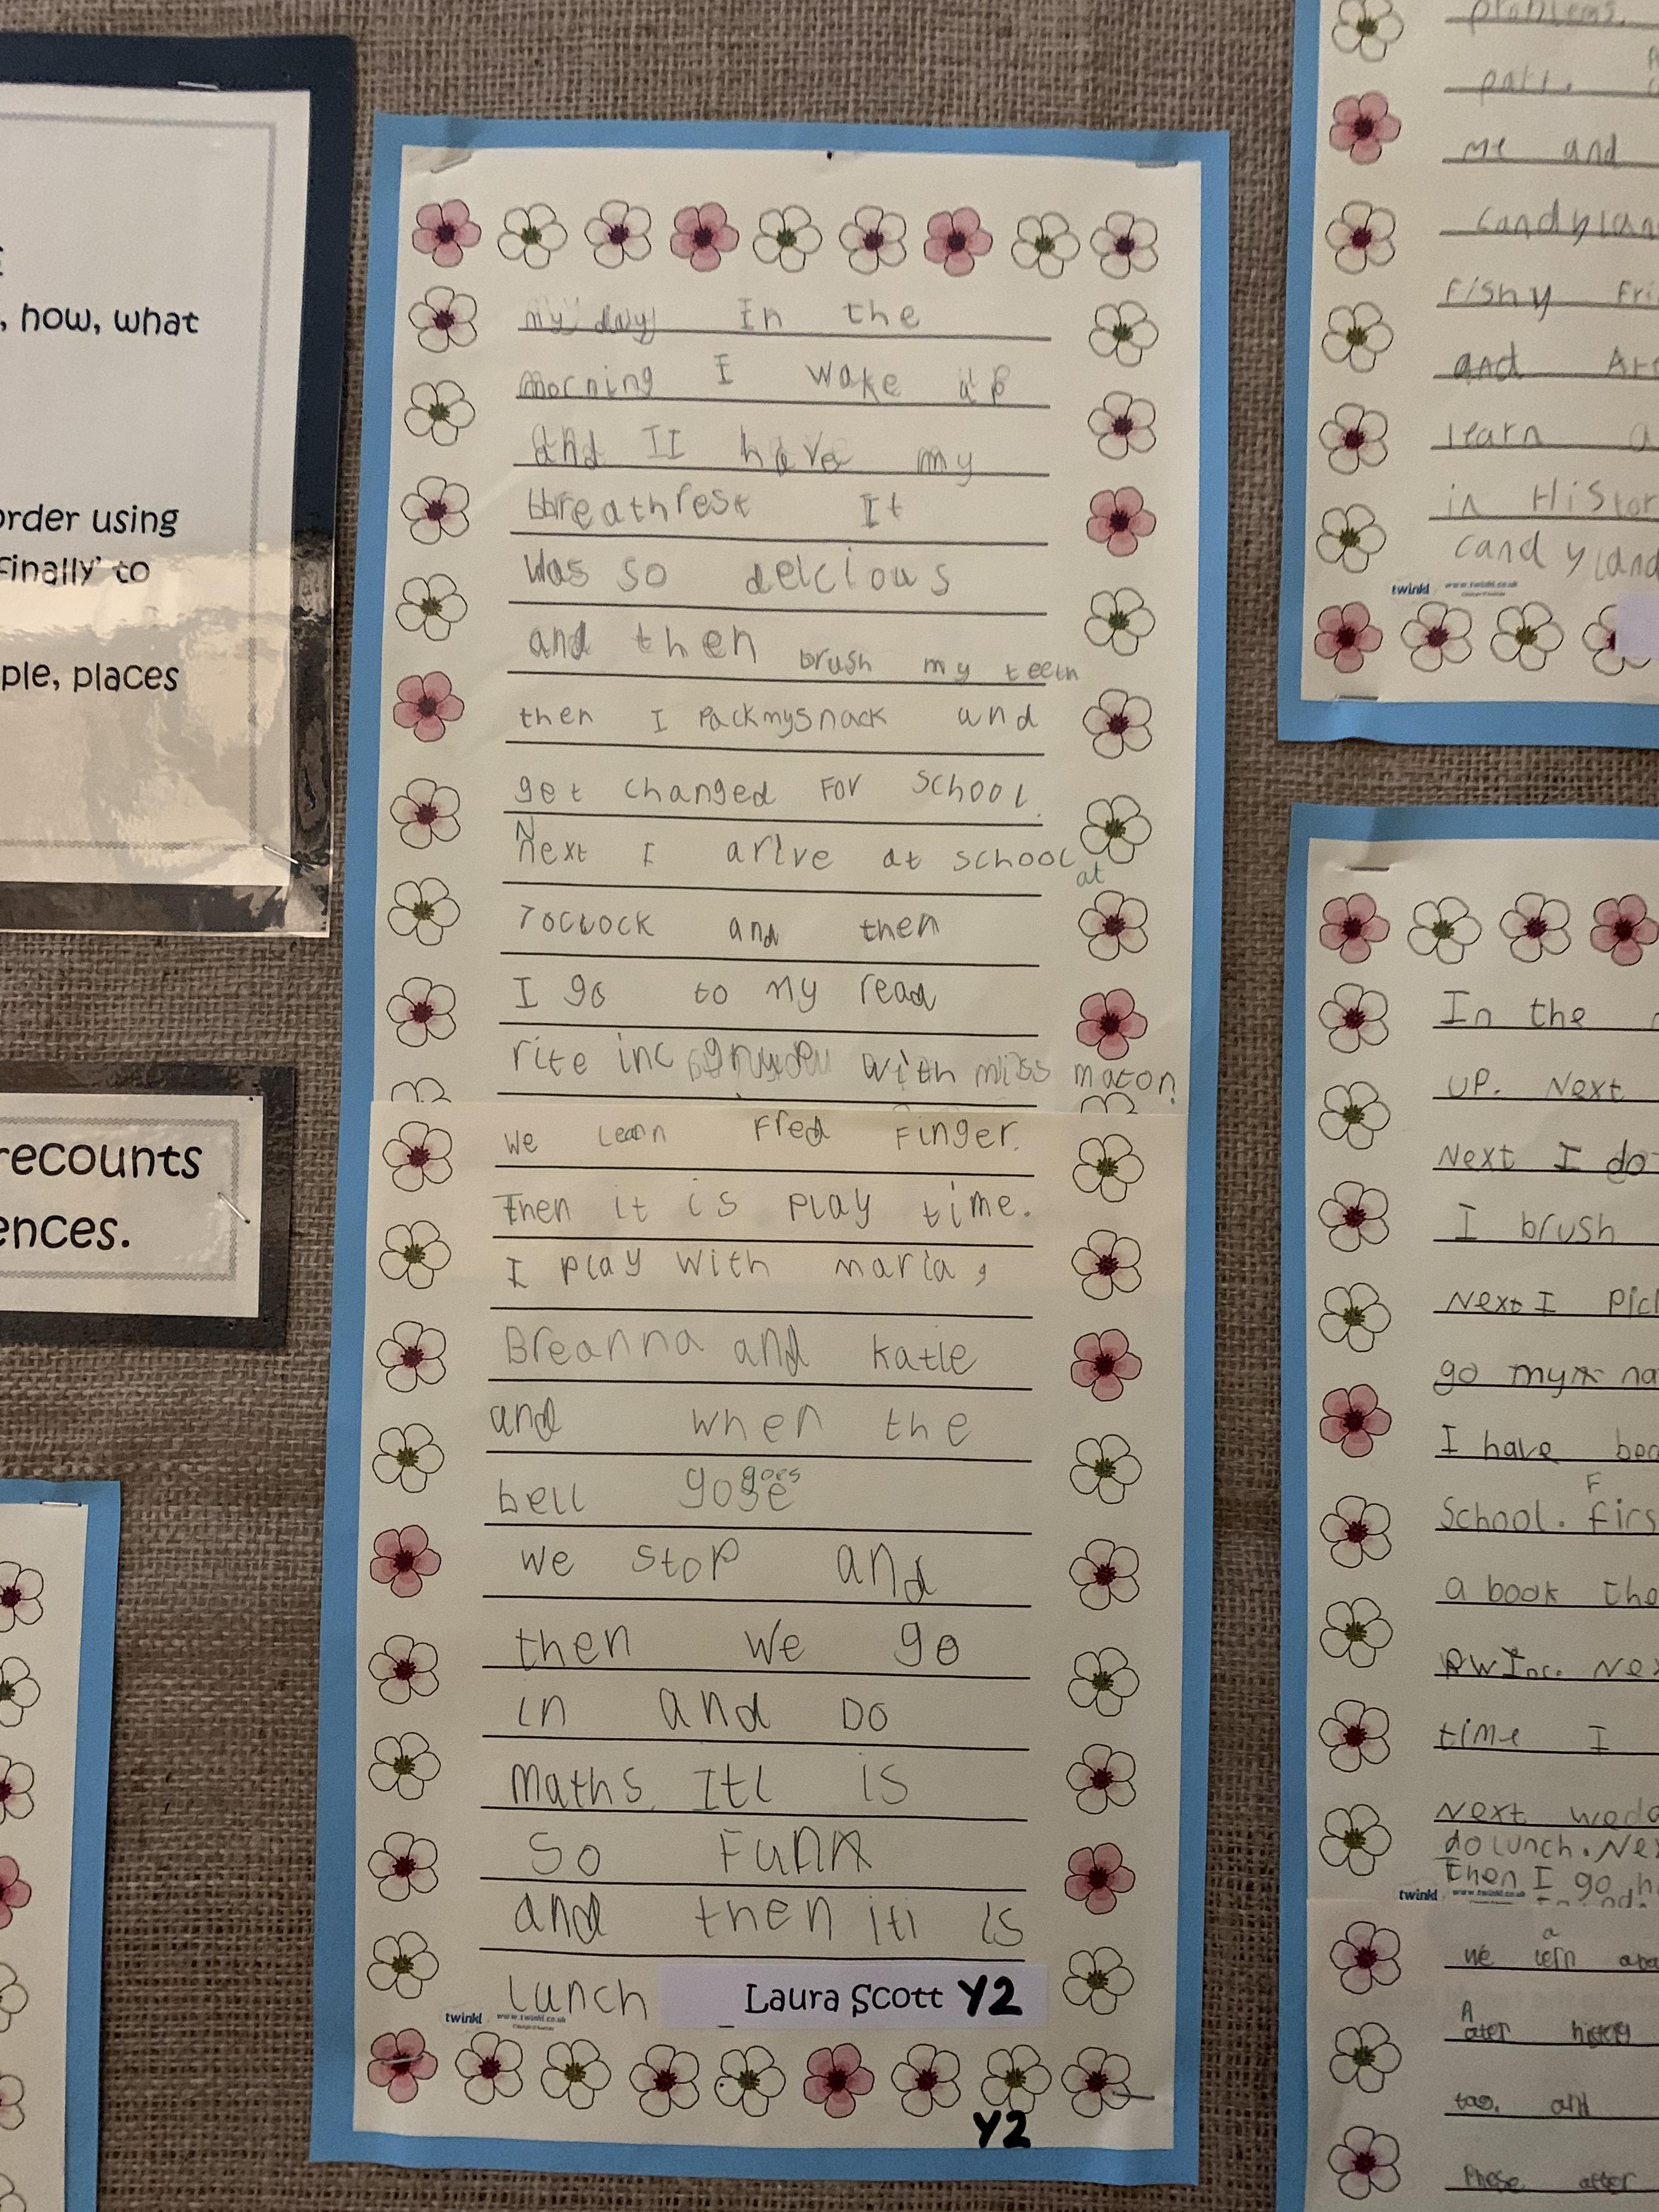 , how, what
order using
Finally' to
ple, places
recounts
ences.
my day In the
morning I wake up
and II have my
breathrest It
Was so delcious
and then brush my teeth
then I Packmysnack and
get changed For School.
N
next I arive at school
at
7oclock and then
I go to my read
rite inc with miss maton.
We Learn Fred Finger.
Then it is play time.
I play with maria,
Breanna and Katie
and when the
goes
bell gose
we stop and
then we go
in and Do
Maths. Iti is
So Funn
and then iti is
Lunch
Laura Scott Y2
twinkl www.twinkl.co.uk
Y2
problems.
part.
me and
candyland
Fishy Fri
and Art
learn a
in Histor
candyland
twinkl www.twinkl.co.uk
In the
UP. Next
Next I do
I brush
Next I Pic
go my na
I have bea
F
School. firs
a book the
RWInc. Nex
time I
Next wedo
do lunch. Nex
Then I go h
twinkl www.twinkl.co.uk
a
We lern abo
A
ater history
and
Phose after